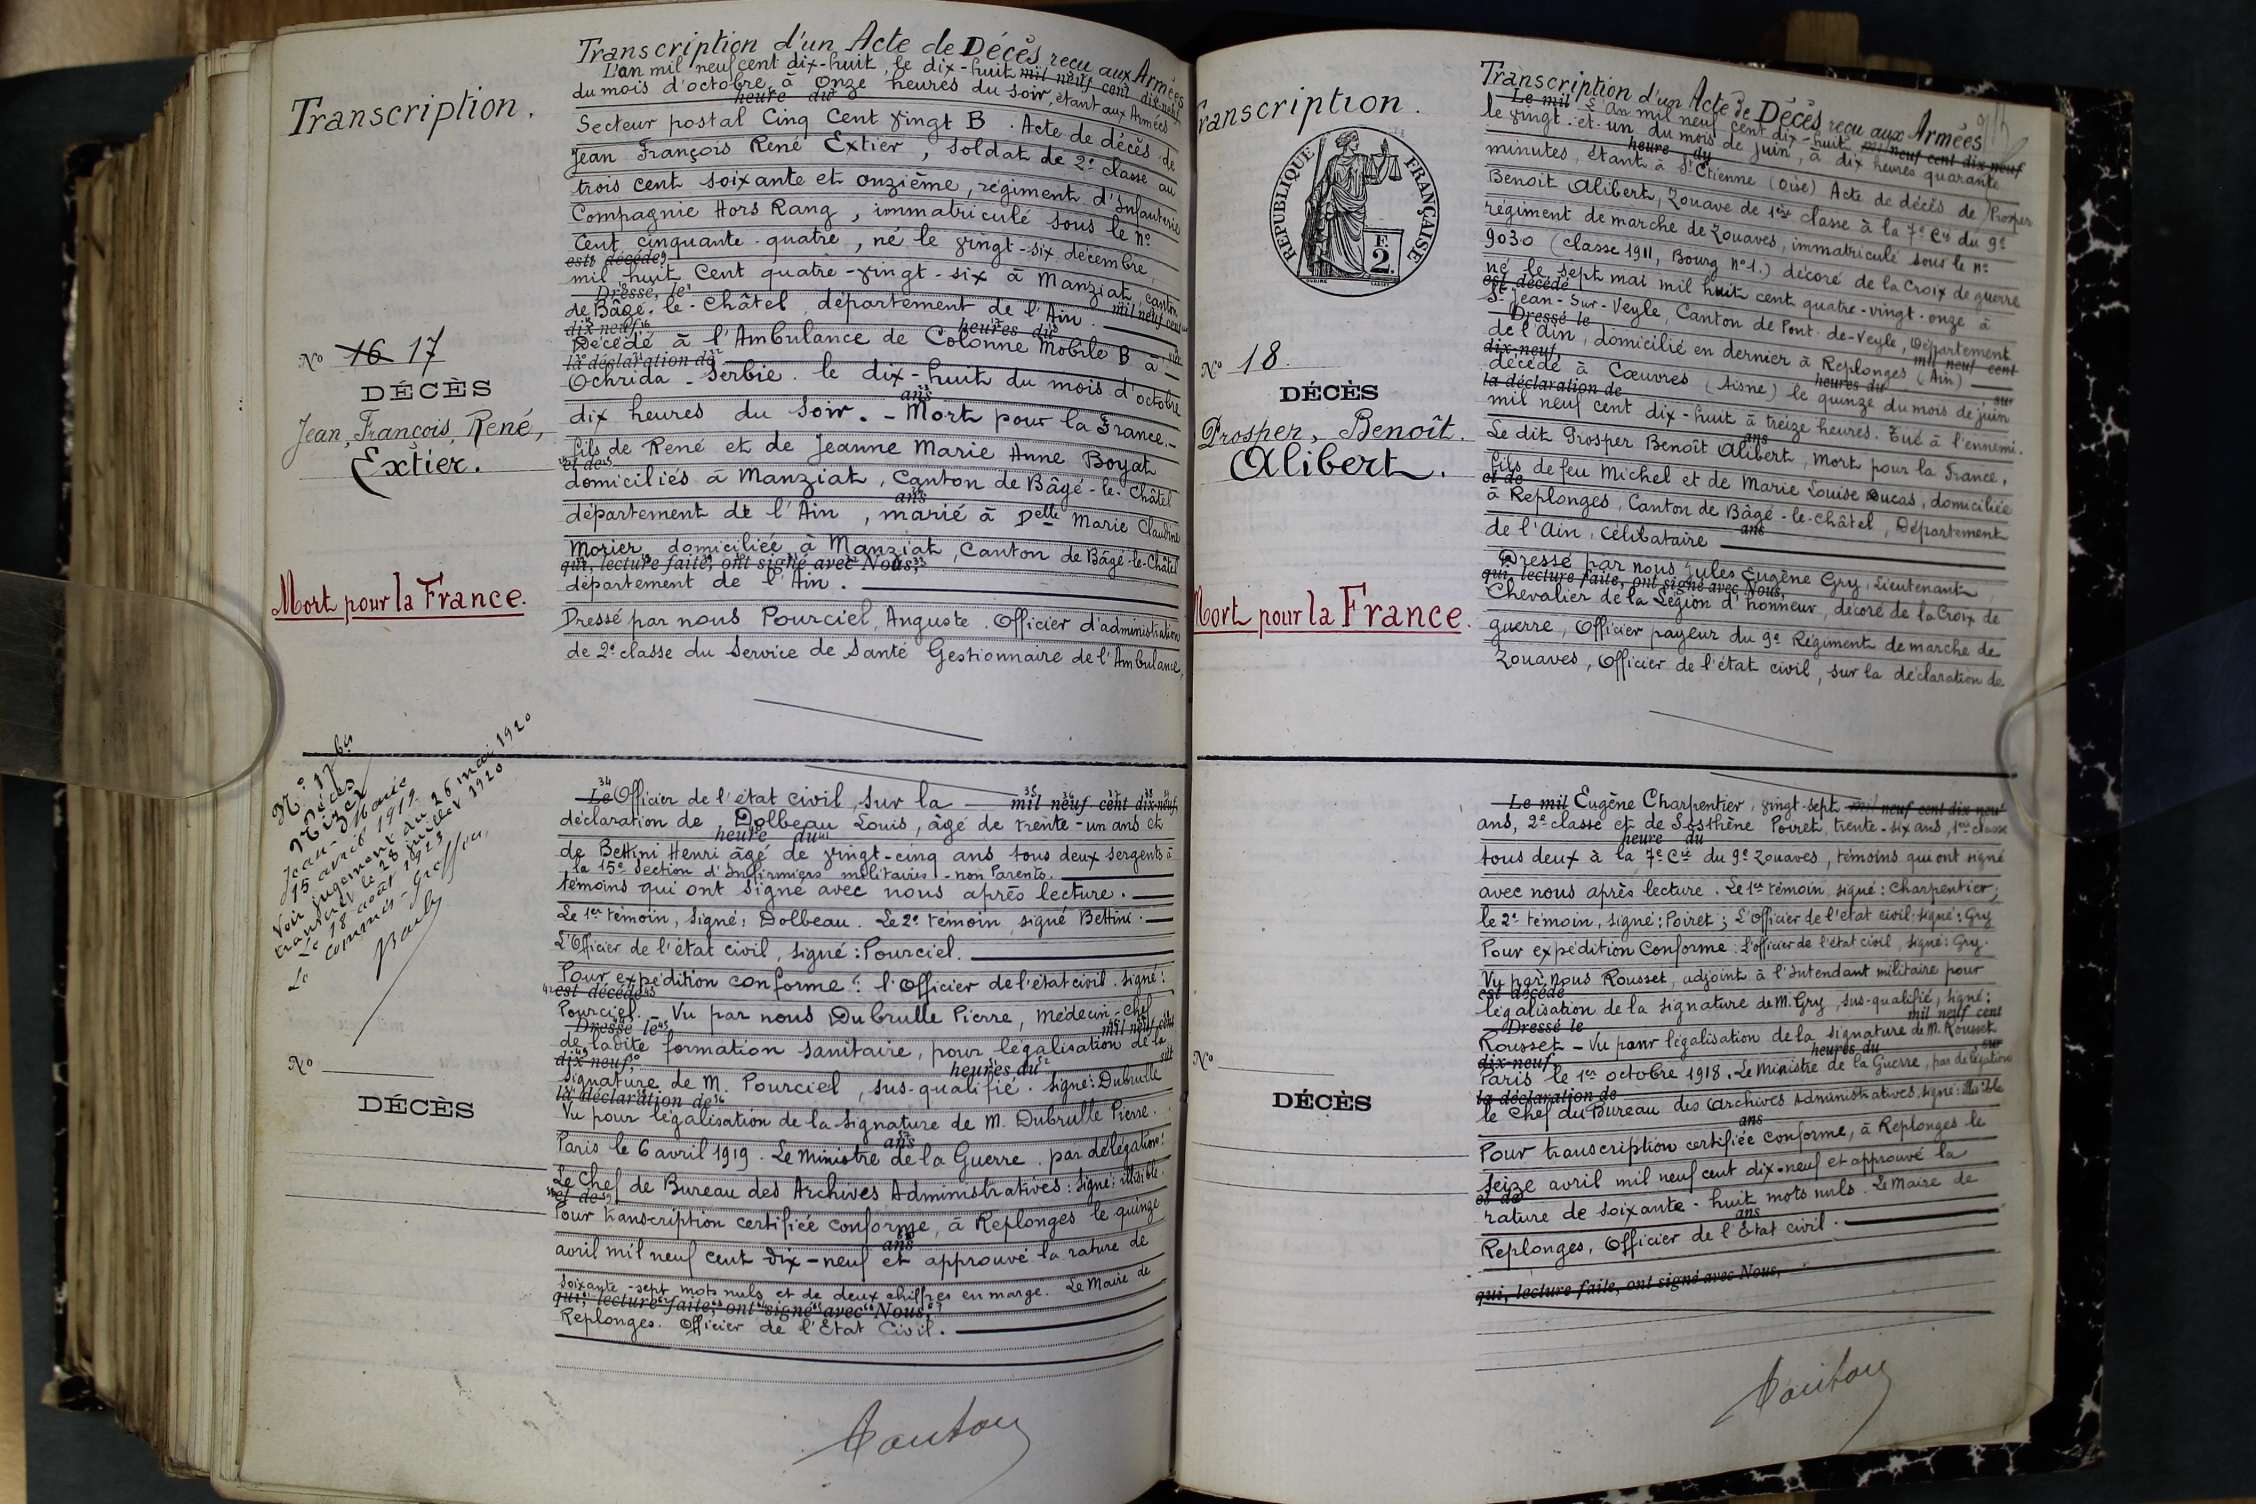 Transcription d'un Acte de Décès reçu aux Armées
L'an mil neuf cent dix-huit, le dix-huit mil neuf cent dix-neuf
du mois d'octobre, à onze heures du soir, étant aux Armées
heure du
Secteur postal Cinq Cent vingt B. Acte de décès de
Jean François René Extier, soldat de 2e classe au
trois cent soixante et onzième, régiment d'Infanterie
Compagnie Hors Rang, immatriculé sous le no
Cent cinquante-quatre, né le vingt-six décembre,
est décédé
mil huit Cent quatre-vingt-six à Manziat, canton
Dressé, le
de Bâgé-le-Châtel, département de l'Ain. mil neuf cent
dix neuf heures du
Décédé à l'Ambulance de Colonne Mobile B à
la déclaration de
Ochrida - Serbie. le dix-huit du mois d'octobre
ans
dix heures du soir. - Mort pour la France. -
fils de René et de Jeanne Marie Anne Boyat
et de
domiciliés à Manziat, Canton de Bâgé-le-Châtel
ans
département de l'Ain, marié à Delle Marie Claudine
Morier, domiciliée à Manziat, Canton de Bâgé-le-Châtel
qui, lecture faite, ont signé avec Nous,
département de l'Ain.
Dressé par nous Pourciel, Auguste. Officier d'administration
de 2e classe du Service de Santé Gestionnaire de l'Ambulance,
Transcription.
No 16 17
DÉCÈS
Jean, François, René,
Extier.
Mort pour la France.
No 17 bis
Décès
Jean-Marie
15 avril 1919
Voir jugement du 26 mai 1920
transcrit le 28 juillet 1920
Le 18 août 1923
Le commis-Greffier,
Le Officier de l'état civil, sur la mil neuf cent dix-neuf
déclaration de Dolbeau Louis, âgé de trente-un ans et
heure du
de Bettini Henri âgé de vingt-cinq ans tous deux sergents à
la 15e Section d'Infirmiers militaires - non Parents.
témoins qui ont signé avec nous après lecture.
Le 1er témoin, signé: Dolbeau. Le 2e témoin, signé Bettini.
L'Officier de l'état civil, signé: Pourciel.
Pour expédition conforme: l'Officier de l'état civil. signé:
est décédé
Pourciel. - Vu par nous Dubrulle Pierre, médecin-chef
Dressé le mil neuf cent
de ladite formation sanitaire, pour légalisation de la
dix-neuf, heures du sur
signature de M. Pourciel, sus-qualifié. signé: Dubrulle
la déclaration de
Vu pour légalisation de la signature de M. Dubrulle Pierre.
ans
Paris le 6 avril 1919. Le Ministre de la Guerre. par délégation:
Le Chef de Bureau des Archives Administratives: signé: illisible.
et de
Pour transcription certifiée conforme, à Replonges le quinze
ans
avril mil neuf cent dix-neuf et approuvé la rature de
soixante-sept mots nuls et de deux chiffres en marge. Le Maire de
qui, lecture faite, ont signé avec Nous,
Replonges. Officier de l'État Civil.
No
DÉCÈS
Transcription d'un Acte de Décès reçu aux Armées
Le mil L'an mil neuf cent dix-huit mil neuf cent dix-neuf
le vingt-et-un du mois de juin, à dix heures quarante
heure du
minutes, étant à St Etienne (Oise) Acte de décès de Prosper
Benoît Alibert, Zouave de 1ère classe à la 7e Cie du 9e
régiment de marche de Zouaves, immatriculé sous le no
9030 (classe 1911, Bourg no 1.) décoré de la Croix de guerre
né le sept mai mil huit cent quatre-vingt-onze à
est décédé
St Jean-Sur-Veyle, Canton de Pont-de-Veyle, Département
Dressé le mil neuf cent
de l'Ain, domicilié en dernier à Replonges (Ain)
dix-neuf, heures du sur
décédé à Cœuvres (Aisne) le quinze du mois de juin
la déclaration de
mil neuf cent dix-huit à treize heures. Tué à l'ennemi.
ans
Le dit Prosper Benoît Alibert, Mort pour la France,
fils de feu Michel et de Marie Louise Ducas, domiciliée
et de
à Replonges, Canton de Bâgé-le-Châtel, Département
ans
de l'Ain, célibataire
Dressé par nous Jules Eugène Gry, Lieutenant,
qui, lecture faite, ont signé avec Nous,
Chevalier de la Légion d'honneur, décoré de la Croix de
guerre, Officier payeur du 9e Régiment de marche de
Zouaves, Officier de l'état civil, sur la déclaration de
Transcription.
RÉPUBLIQUE FRANÇAISE
F.
2.
No 18.
DÉCÈS
Prosper, Benoît.
Alibert.
Mort pour la France.
Le mil Eugène Charpentier, vingt-sept mil neuf cent dix-neuf
ans, 2e classe et de Sosthène Poiret, trente-six ans, 1ère classe
heure du
tous deux à la 7e Cie du 9e Zouaves, témoins qui ont signé
avec nous après lecture. Le 1er témoin, signé: Charpentier,
le 2e témoin, signé: Poiret; L'Officier de l'état civil: signé: Gry
Pour expédition Conforme: l'officier de l'état civil, signé: Gry.
Vu par Nous Rousset, adjoint à l'Intendant militaire pour
est décédé
légalisation de la signature de M. Gry, sus-qualifié, signé:
Dressé le mil neuf cent
Rousset - Vu pour légalisation de la signature de M. Rousset.
dix-neuf heures du sur
Paris le 1er octobre 1918. Le Ministre de la Guerre, par délégation
la déclaration de
le Chef du Bureau des Archives Administratives, signé: illisible
ans
Pour transcription certifiée conforme, à Replonges le
seize avril mil neuf cent dix-neuf et approuvé la
et de
rature de soixante-huit mots nuls. Le Maire de
ans
Replonges, Officier de l'État civil.
qui, lecture faite, ont signé avec Nous,
No
DÉCÈS